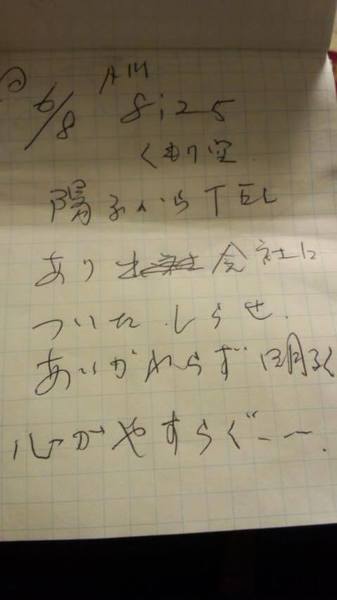 6/8 AM 8:25
くもり空
陽子からTEL
あり 会社に
ついたしらせ.
あいかわらず明るく
心がやすらぐ――.